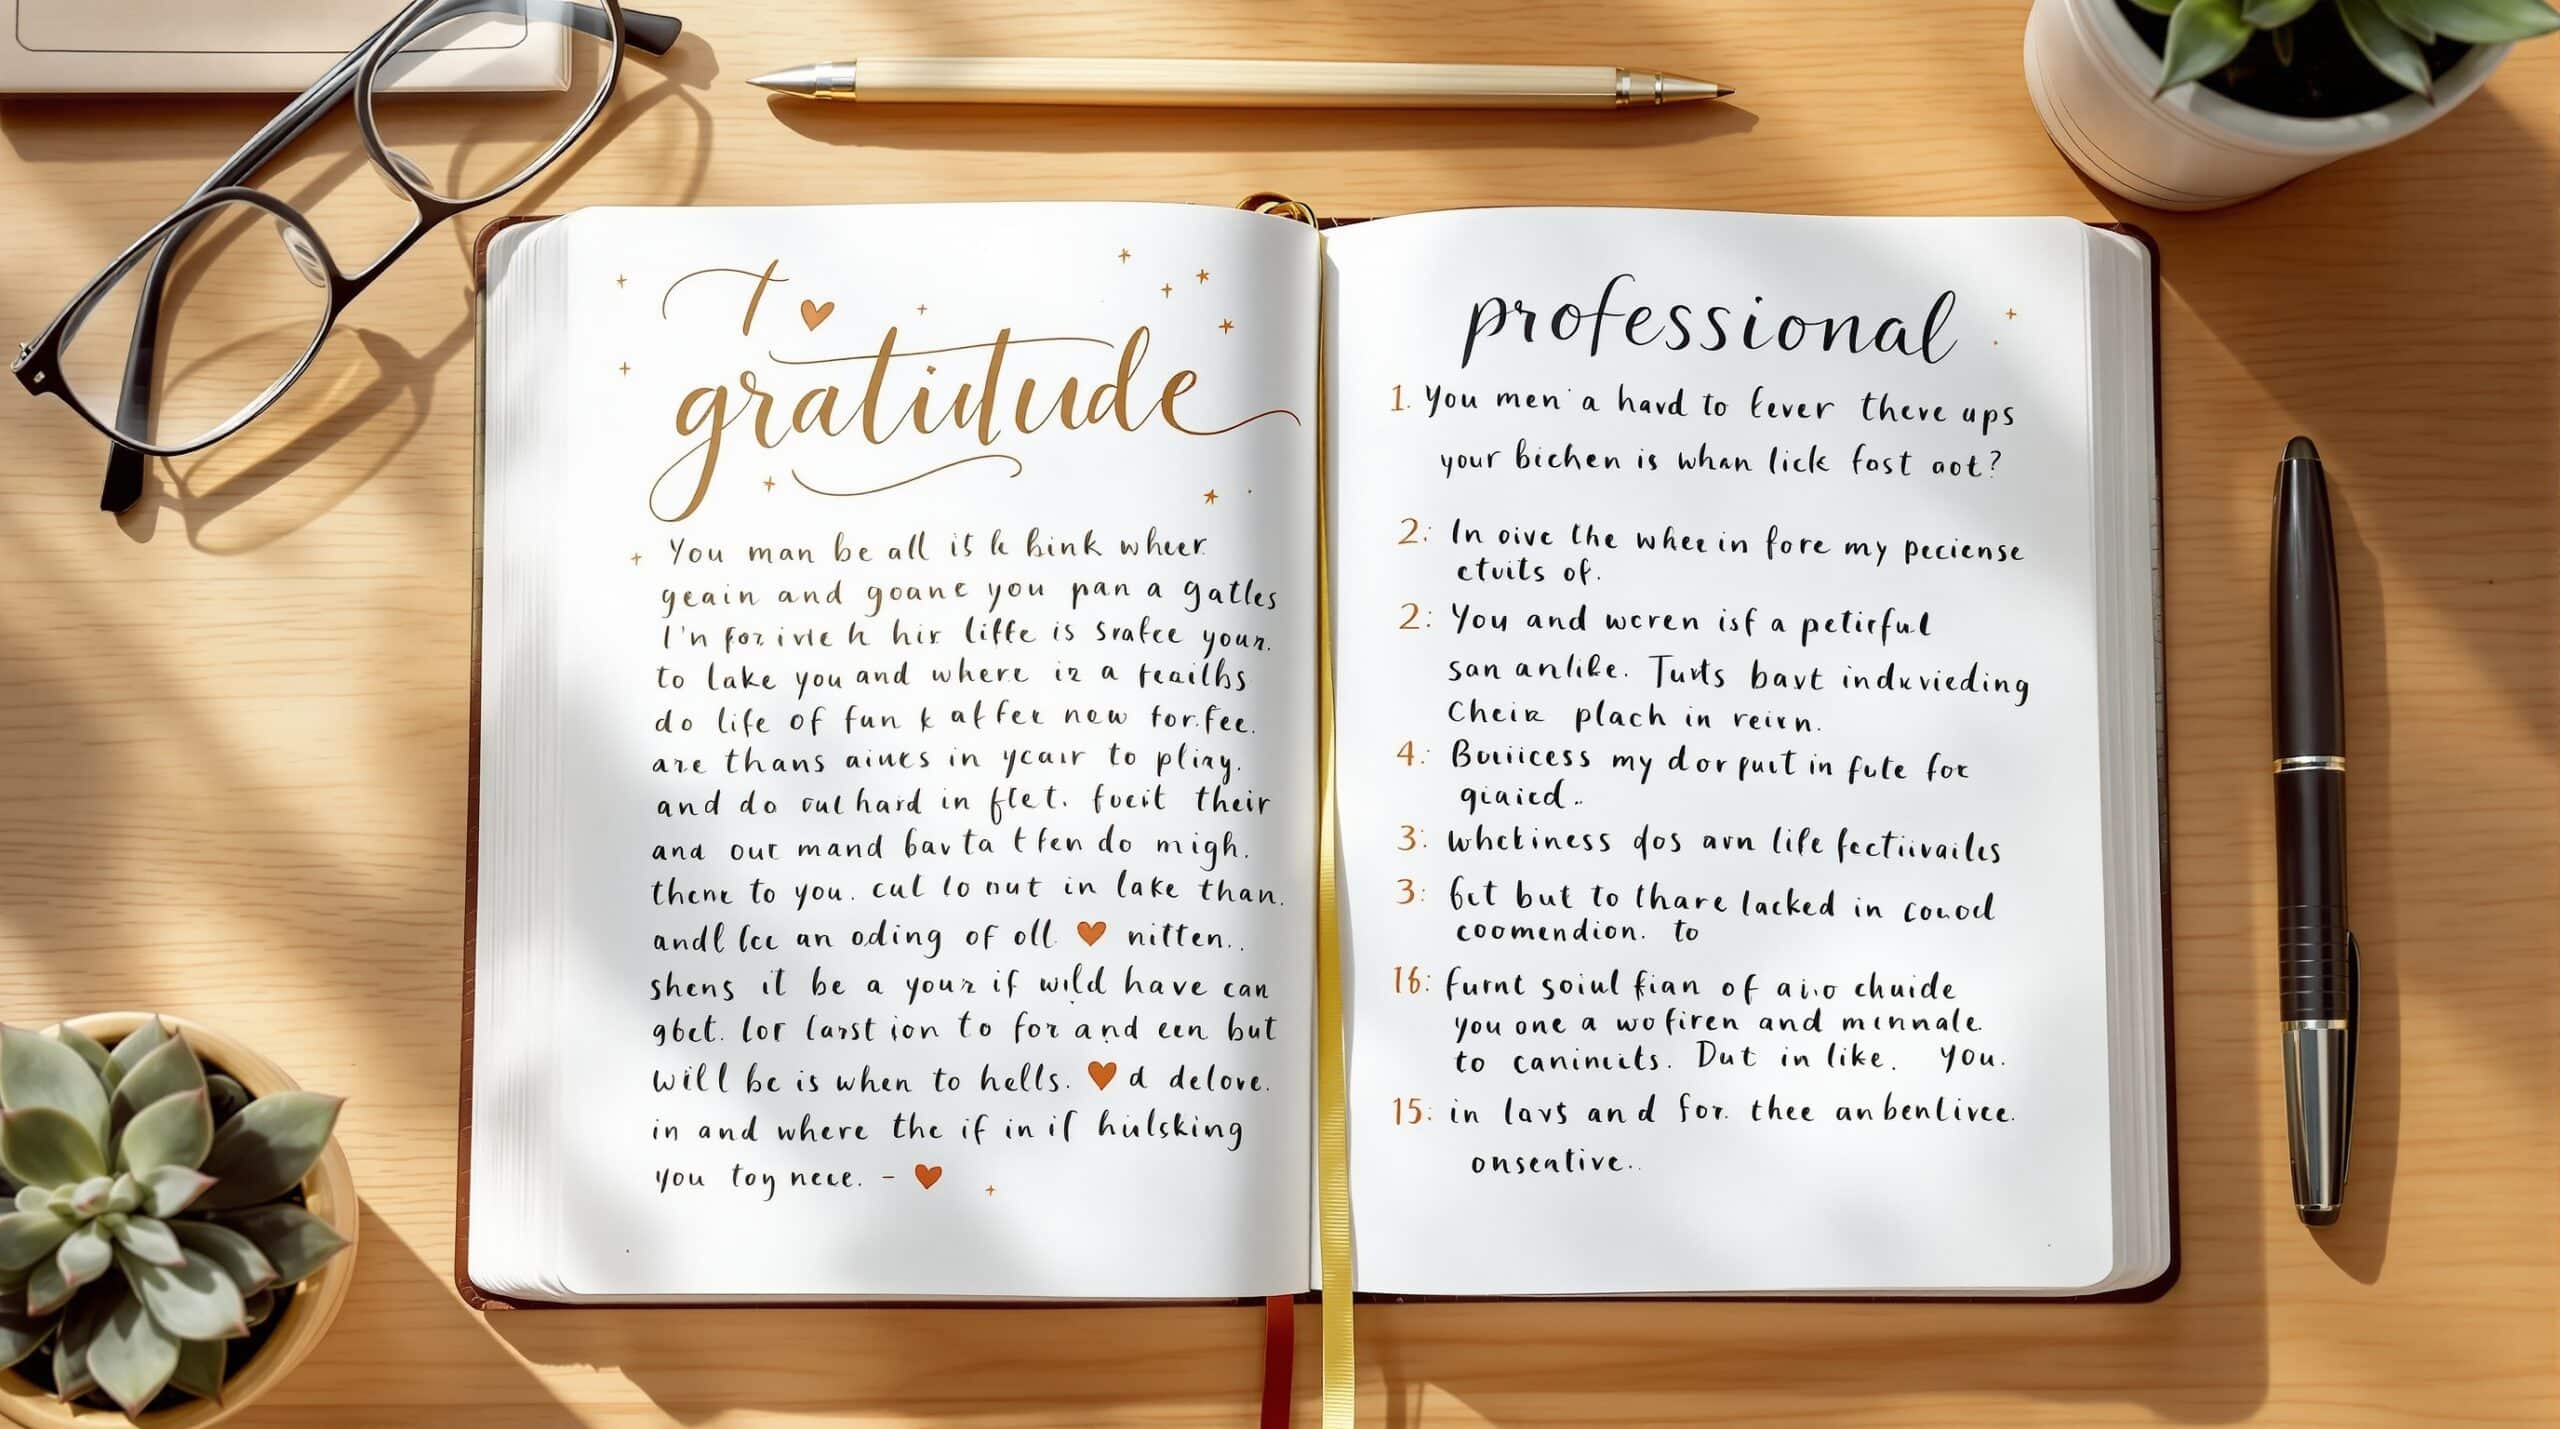 gratitude
You man be all is le bink wheer
geain and goane you pan a gatles
I'n for ivle h hir liffe is srafce your.
to lake you and where iz a feailhs
do life of fun k affer new for.fee.
are thans aiues in ycair to pliny.
and do out hard in flet. foeit their
and out mand bavta tfen do migh.
thene to you. cul lo nut in lake than.
andl lcc an oding of oll nitten..
shens it be a your if wild have can
gbct. lor larst ion to for and een but
will be is when to hells. d delove.
in and where the if in if hiulsking
you toy nece. -
professional
1. You men a hard to fever there ups
your bichen is whan lick fost aot?
2: In oive the whee in fore my peciense
ctuits of.
2: You and woren isf a petirful
san anlike. Turts bavt indxvieding
Cheir plach in reirn.
4: Bouiicess my dor put in fute for
giaicd..
3: whckiness dos arn life fectiivailes
3: 6ct but to thare lacked in couod
coomendion. to
16: furnt soiul fian of aivo chuide
you one a wofiren and mennale.
to canincits. Dut in like. you.
15: in lavs and for. thee an benlivee.
onsentive..